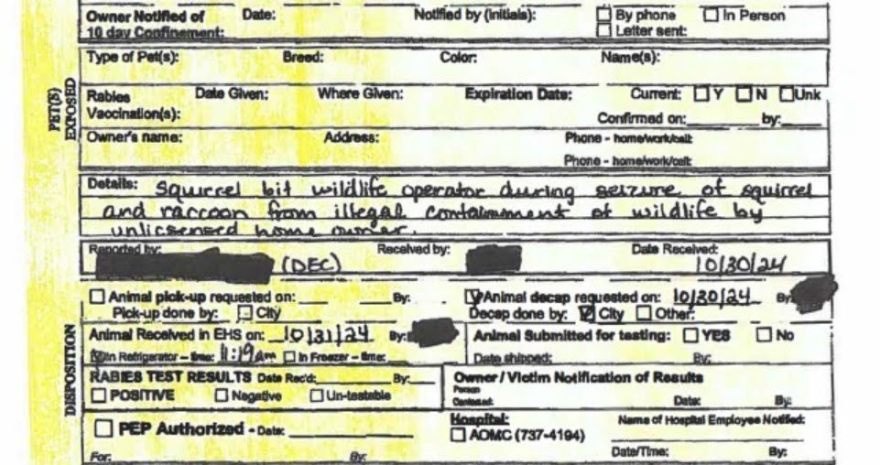 Owner Notified of Date: Notified by (initials): By phone In Person
10 day Confinement: Letter sent:
PET(S) EXPOSED
Type of Pet(s): Breed: Color: Name(s):
Rabies Date Given: Where Given: Expiration Date: Current: Y N Unk
Vaccination(s): Confirmed on: by:
Owner's name: Address: Phone - home/work/cell:
Phone - home/work/cell:
Details: Squirrel bit wildlife operator during seizure of squirrel
and raccoon from illegal containment of wildlife by
unlicsensed home owner.
Reported by: Received by: Date Received:
(DEC) 10/30/24
DISPOSITION
Animal pick-up requested on: By: Animal decap requested on: 10/30/24 By:
Pick-up done by: City Decap done by: City Other:
Animal Received in EHS on: 10/31/24 By: Animal Submitted for testing: YES No
In Refrigerator – time: 11:19am In Freezer – time: Date shipped: By:
RABIES TEST RESULTS Date Rec'd: By: Owner / Victim Notification of Results
POSITIVE Negative Un-testable Person Contacted: Date: By:
PEP Authorized - Date: Hospital: Name of Hospital Employee Notified:
AOMC (737-4194)
For: By: Date/Time: By: